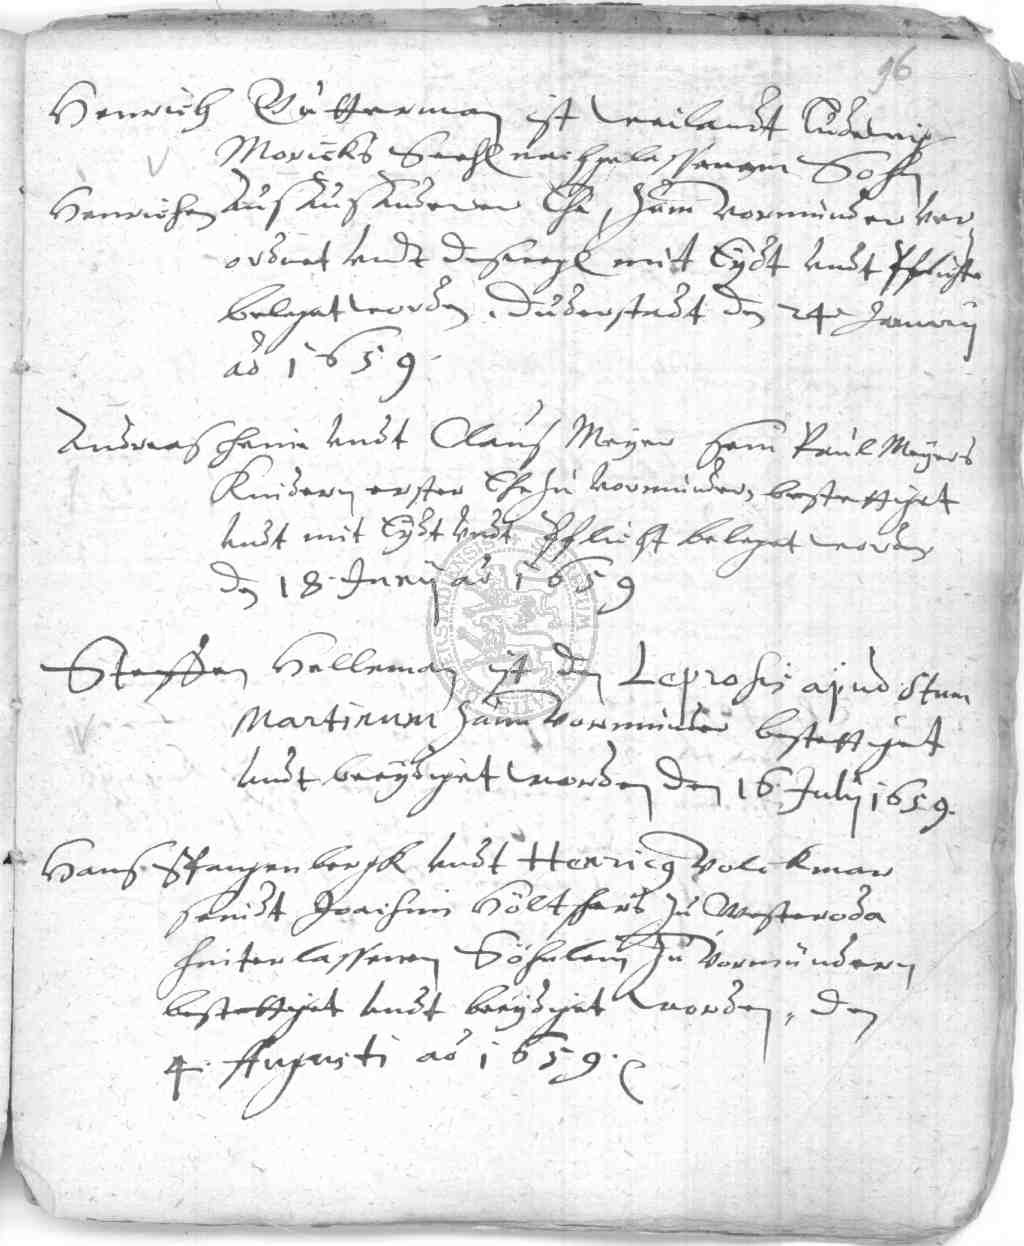 96
Henrich Tütterman ist weilandt Ludewig
Moricks Seehl nachgelassenem Sohn
Henrichen auß anderer Ehe, zum Vormünder ver
ordnet undt deswegen mit Eydt undt Pflicht
beleget worden. Duderstadt den 24 January
ao 1659.
Andreas undt Clauß Meyer sein Paul Meyers
Kindern erster Ehe zu Vormünder bestettiget
undt mit Eydt undt Pflicht beleget worden
den 18. Juny ao 1659
Steffen Helleman ist den Leprosis apud Stum
Martinum zum Vormünder bestettiget
undt beeydiget worden den 16 July 1659.
Hanß Spangenbergk undt Henricg Volckmar
seindt Joachim Höltzhers zu Westeroda
hinterlassenen Söhnlein zu Vormündern
bestettiget undt beeydiget worden, den
4. Augusti ao 1659.